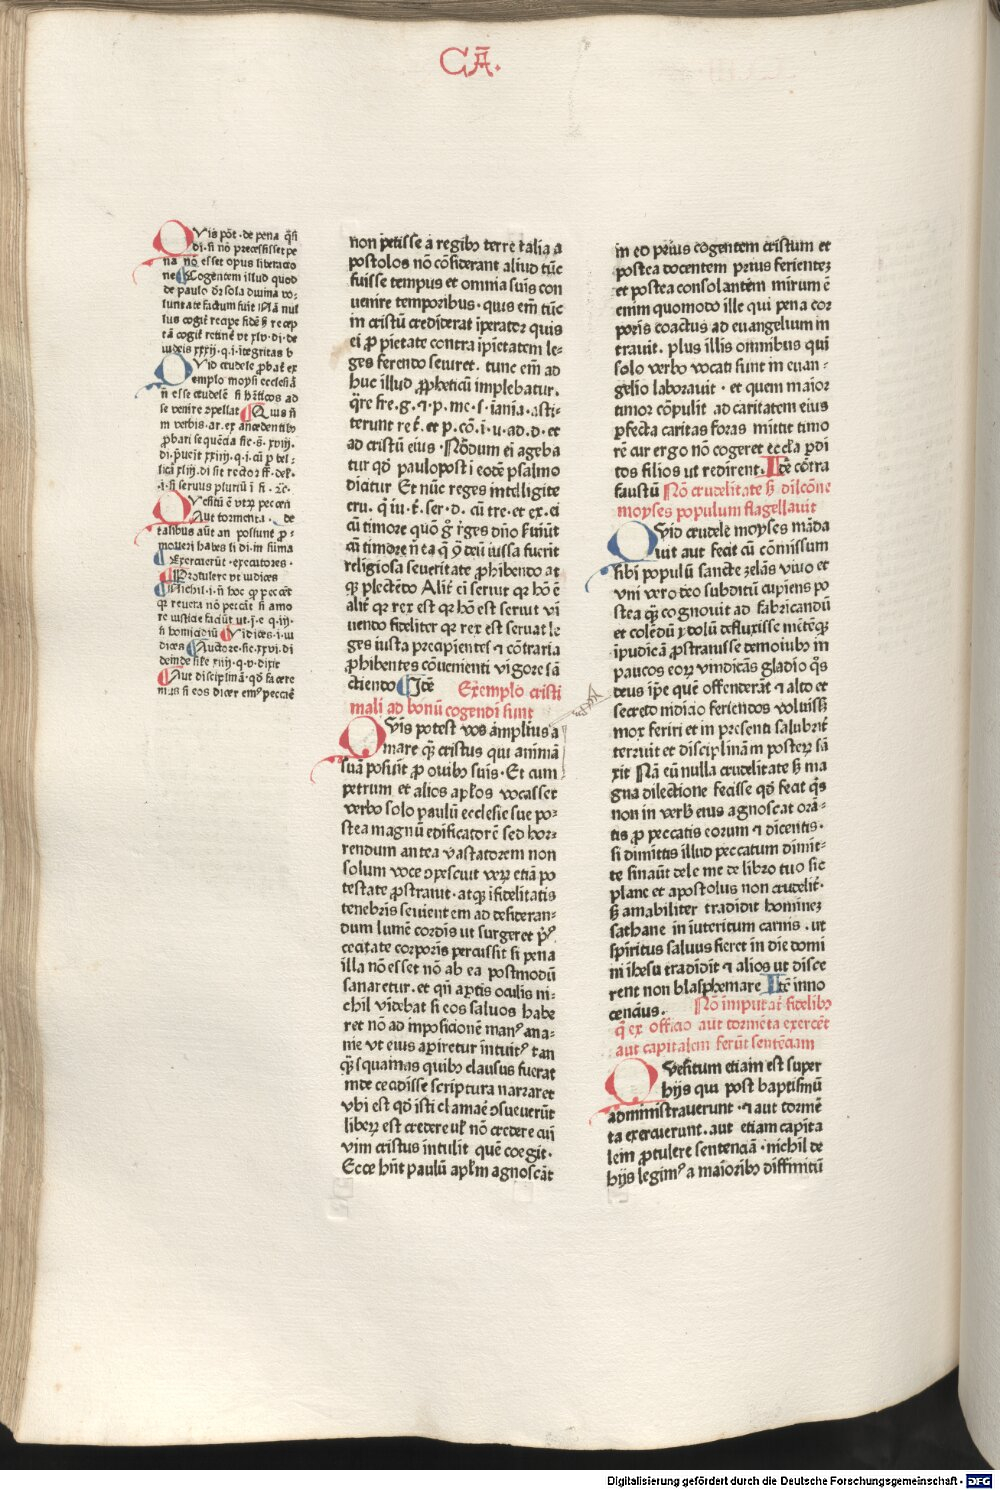 CA̅.
Qvis põt · de pena q̃si
di · si nõ p̃recessisset pe
na nõ esset opus liberatio
ne Cogentem illud quod
de paulo dr̃ sola diuina vo-
luntate factum fuit Nã nul
lus cogit̃ recipe fidẽ
tã cogit̃ retinẽ vt xlv · di · de
iudeis xxxij · q · i · ĩtegritas
Qvid crudele ꝓbat̃ ex
emplo moysi ecclesiã
ñ esse crudelẽ si hẽticos ad
se venire cõpellat Quis ñ
m verbis · ar · ex ancedentibꝰ
di · pueit xxiiij · q · i · cũ p bel-
licã xliij · di sit rector ff · del ·
· i · si seruus pluriũ i fi · zc̃ ·
Qvesitũ ẽ vtꝝ peccẽt
Aut tormenta · de
talibus aũt an possint ꝓ-
moueri habes li di · in sũma
Exercuerũt · executores ·
Protulere vt iudices
Nichil · i · ñ hoc qꝛ peccẽt
qꝛ reuera nõ peccãt si amo
re iusticie faciũt ut · j · e · q · iij ·
si homicidiũ Vidices · i · iu
dices Auctore · sic · xxvi · di
deinde sil'e xiiij · q · v · dixit
Aut disciplinã · qd̃ facere
mus si eos dicer̃ emꝰ peccẽ
non petisse a regibꝫ terre talia a
postolos nõ cõsiderant aliud tũc
fuisse tempus et omnia suis con
uenire temporibus · quis em̃ tũc
in cristũ crediderat ĩperator quis
ei ꝓ pietate contra ĩpietatem le-
ges ferendo seuiret · tunc em̃ ad
huc illud ꝓpheticũ implebatur ·
q̃re fre · g · ⁊ · p · me · s · iania · asti-
terunt re t̃ · et p · cõ · i · u · ad · d · et
ad cristũ eius · Nõdum ei ageba
tur qd̃ paulopost i eodẽ psalmo
dicitur Et nũc reges intelligite
eru · q̃ iu · t̃ · ser · d · cũ tre · et ex · ei
cũ timore quõ g̊ r̃ges dño s̃uiũt
cũ timore ñ ea q̃ ꝯ̃ deũ iussa fuerit
religiosa seueritate ꝓhibendo at
qꝫ plectẽdo Alit̃ eĩ seruit qꝛ hõ ẽ
alit̃ qꝛ rex est qꝛ hõ est seruit vi
uendo fideliter qꝛ rex est seruat le
ges iusta precapientes ⁊ cõtraria
ꝓhibentes cõuenienti vigore sã
ctiendo Itẽ Exemplo cristi
mali ad bonũ cogendi sunt
Qvis potest vos amplius a
mare q̃ cristus qui animã
suã posuit ꝓ ouibꝫ suis · Et cum
petrum et alios apl'os vocasset
verbo solo paulũ ecclesie sue po-
stea magnũ edificatorẽ sed hor-
rendum antea vastatorem non
solum voce cõpescuit verꝝ etiã po
testate ꝓstrauit · atqꝫ ĩfidelitatis
tenebris seuientem ad desideran-
dum lumẽ cordis ut surgeret pꝰ
cecitate corporis percussit si pena
illa nõ esset nõ ab ea postmodũ
sanaretur · et qñ aꝑtis oculis ni-
chil videbat si eos saluos habe
ret nõ ad imposicionẽ manꝰ ana-
nie vt eius aꝑiretur intuitꝰ tan
q̃ squamas quibꝫ clausus fuerat
inde cecidisse scriptura narraret
vbi est qd̃ isti clamare cõsueuerũt
liberꝝ est credere ul' nõ credere cui
vim cristus intulit quẽ coegit ·
Ecce hñt paulũ apl'm agnoscãt
in eo prius cogentem cristum et
postea docentem prius ferientez
et postea consolantem mirum ẽ
enim quomodo ille qui pena cor
poris coactus ad euangelium in
trauit · plus illis omnibus qui
solo verbo vocati sunt in euan-
gelio laborauit · et quem maior
timor cõpulit ad caritatem eius
ꝑfecta caritas foras mittit timo
rẽ cur ergo nõ cogeret eccl'a ꝑdi
tos filios ut redirent · Itẽ cõtra
faustũ Nõ crudelitate sꝫ dilcõne
moyses populum flagellauit
Qvid crudele moyses mãda
uit aut fecit cũ cõmissum
sibi populũ sancte zelãs viuo et
vni vero deo subditũ cupiens po
stea q̃ cognouit ad fabricandũ
et colẽdũ ydolũ defluxisse mẽtẽqꝫ
ĩpudicã ꝓstrauisse demoibus in
paucos eorꝝ vindicãs gladio q̃s
deus ip̃e quẽ offenderãt ⁊ alto et
secreto iudicio feriendos voluiss̃
mox feriri et in presenti salubrit̃
terruit et disciplinam posterꝝ sã
xit Nã eũ nulla crudelitate sꝫ ma
gna dilectione fecisse qd̃ fecit q̃s
non in verbꝫ eius agnoscat orã-
tis ꝓ peccatis eorum ⁊ dicentis ·
si dimittis illud peccatum dimit-
te sinaũt dele me de libro tuo sic
plane et apostolus non crudelit̃ ·
sꝫ amabiliter tradidit hominez
sathane in ĩuteritum carnis · ut
spiritus saluus fieret in die domi
ni ihesu tradidit ⁊ alios ut disce
rent non blasphemare Itẽ inno
cencius · Nõ imputat̃ fidelibꝫ
q̃ ex officio aut tormẽta exercẽt
aut capitalem ferũt sentẽciam
Qvesitum etiam est super
hijs qui post baptismũ
administrauerunt · ⁊ aut tormẽ
ta exercuerunt · aut etiam capita
lem ꝓtulere sentenciã · nichil de
hijs legimꝰ a maioribꝫ diffinitũ
Digitalisierung gefördert durch die Deutsche Forschungsgemeinschaft - DFG